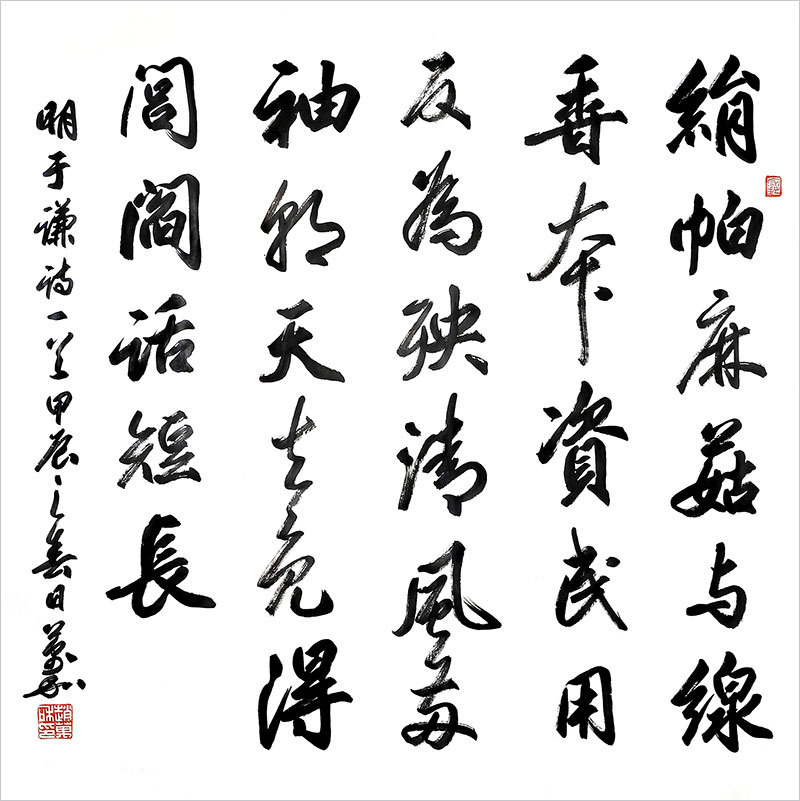 絹帕麻菇与線
香本資民用
反為殃清風兩
袖朝天去免得
閭閻話短長
明于謙詩一首甲辰之春日萬和